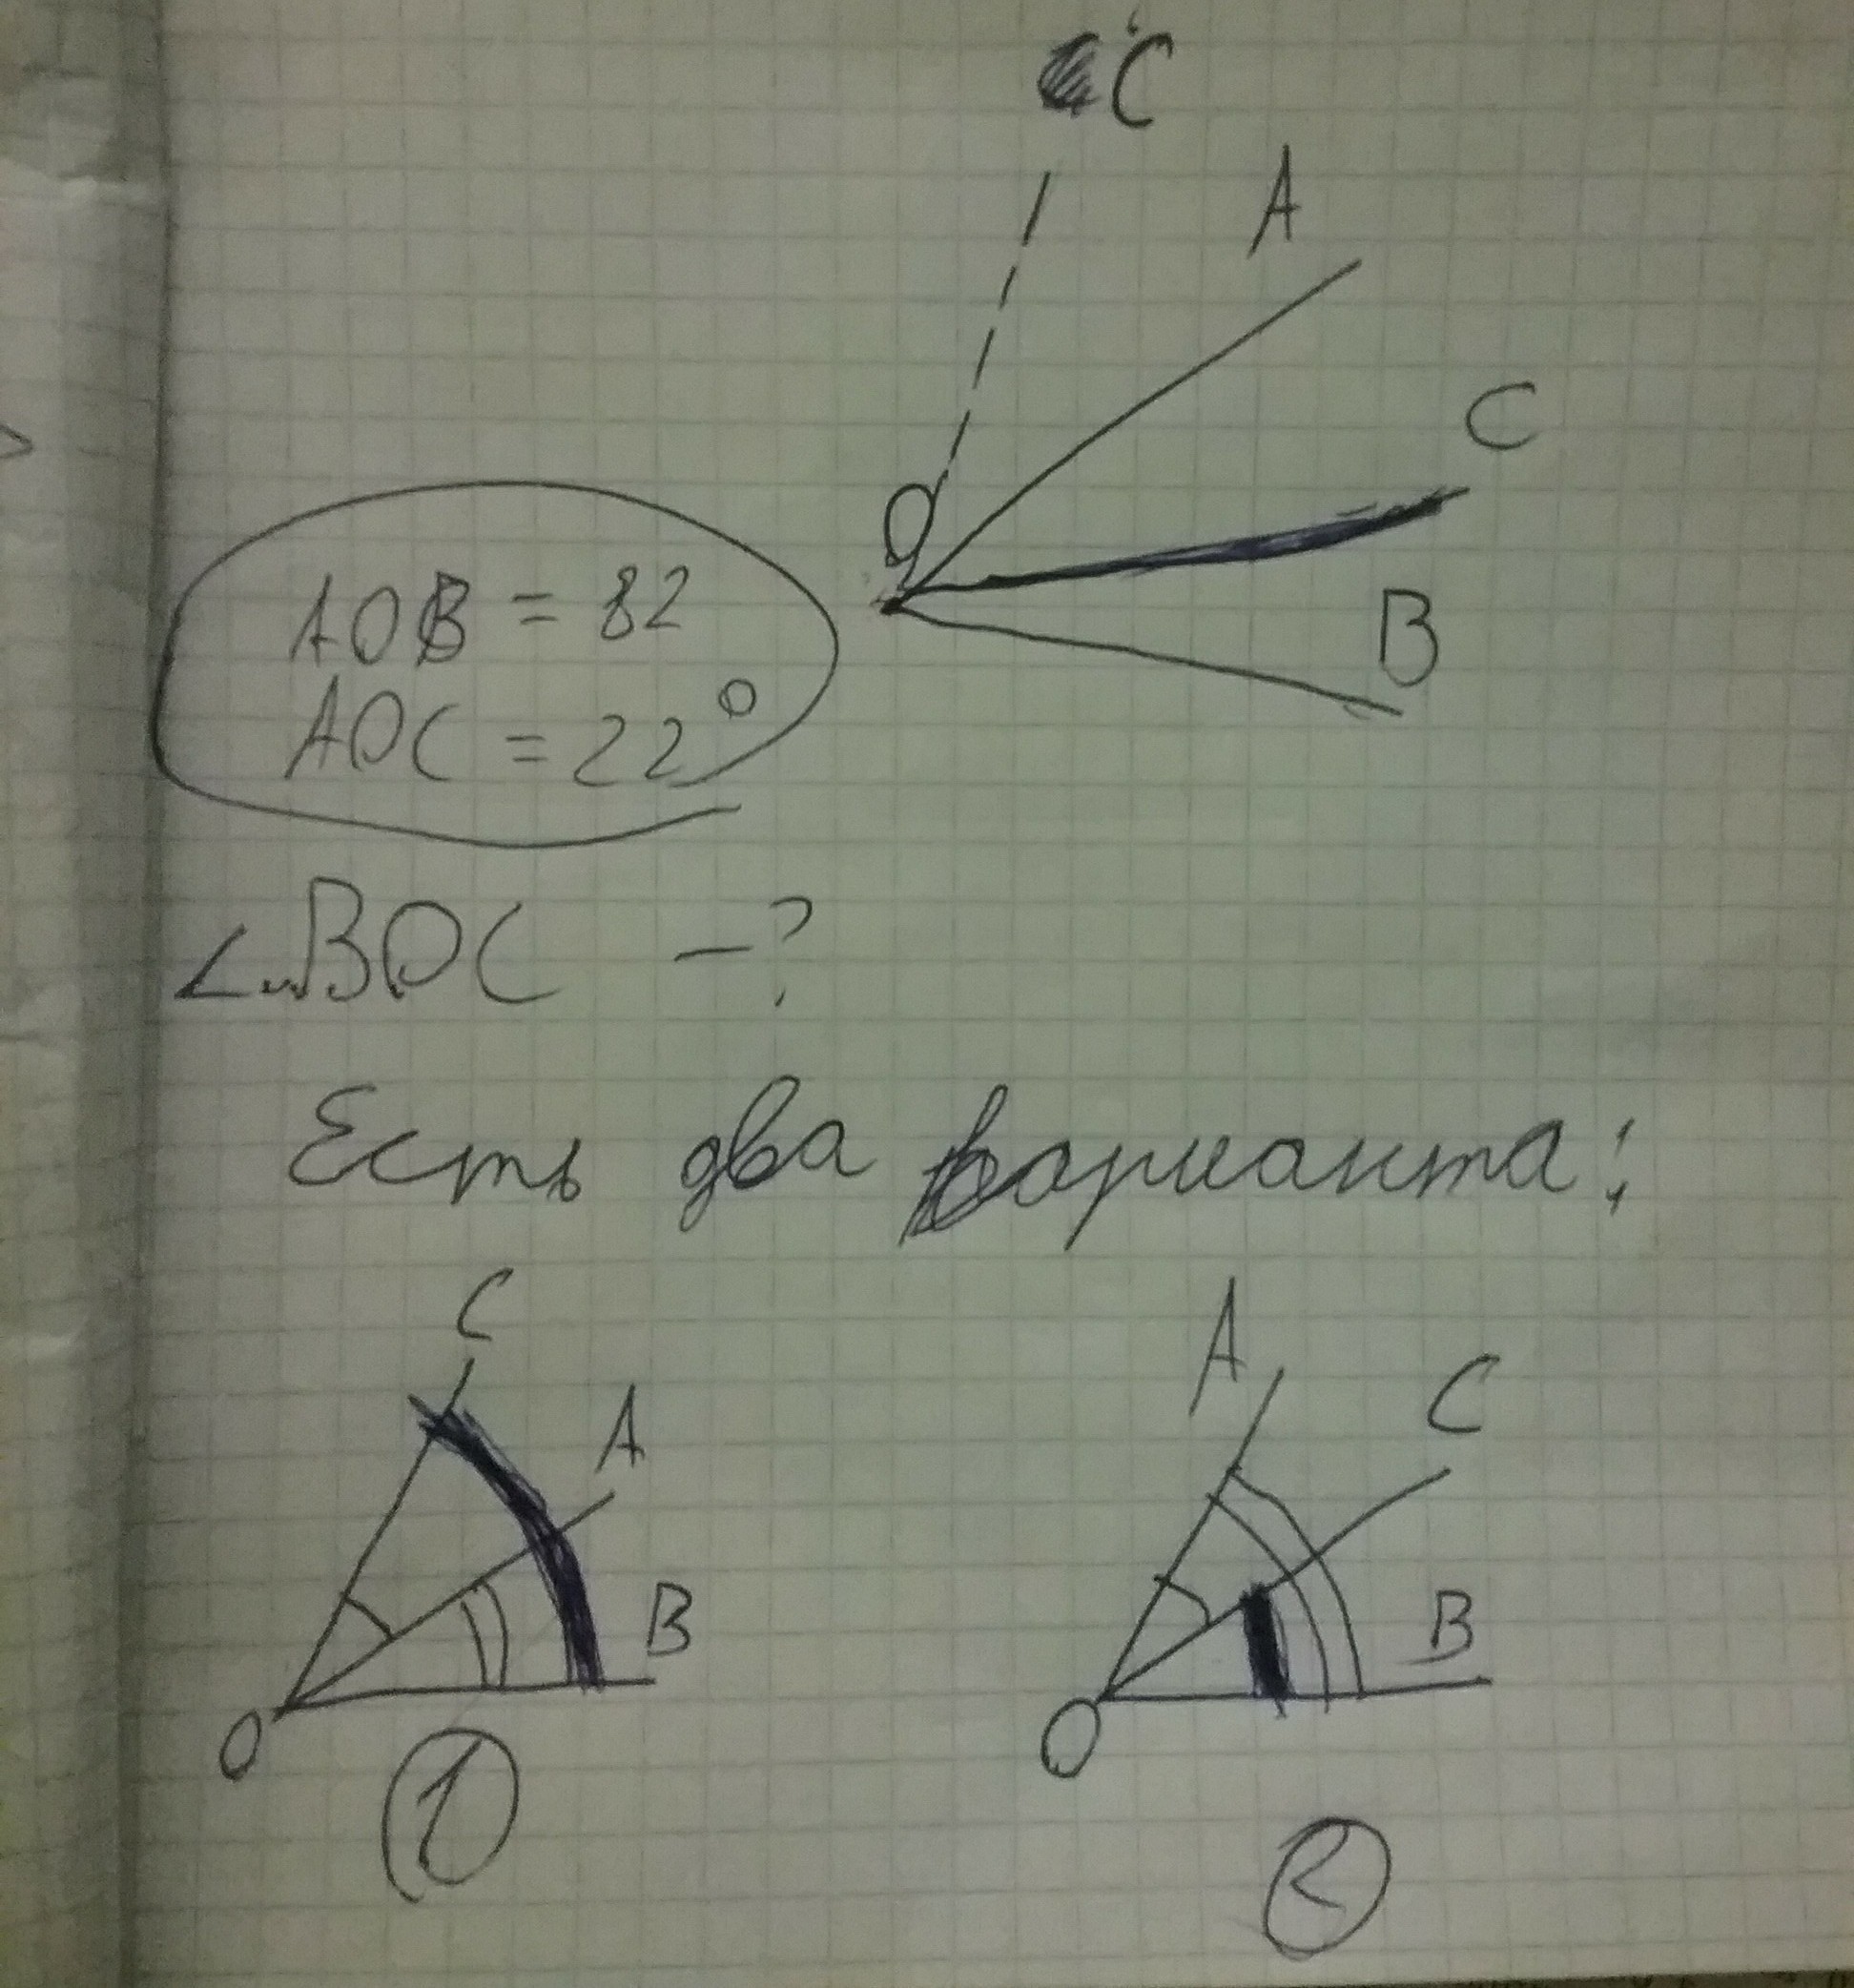 C
A
O
C
B
AOB = 82
AOC = 22°
∠BOC - ?
Есть два варианта:
C
A
B
O
1
A
C
B
O
2